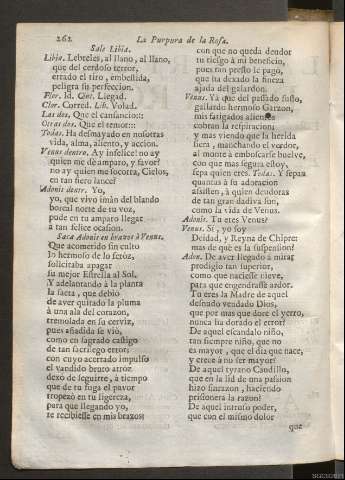 262 La Purpura de la Rosa.
Sale Libia.
Libia. Lebreles, al llano, al llano,
que del cerdoso terror,
errado el tiro, embestida,
peligra su perfeccion.
Flor. Id. Cint. Llegad.
Clor. Corred. Lib. Volad.
Las dos. Que el cansancio::
Otras dos. Que el temor:::
Todas. Ha desmayado en nosotras
vida, alma, aliento, y accion.
Venus dentro. Ay infelice! no ay
quien me dè amparo, y favor?
no ay quien me socorra, Cielos,
en tan fiero lance?
Adonis dentr. Yo,
yo, que vivo imàn del blando
boreal norte de tu voz,
pude en tu amparo llegar
à tan felice ocasion.
Saca Adonis en brazos à Venus.
Que acometido sin culto
lo hermoso de lo feroz,
solicitaba apagar
su mejor Estrella al Sol.
Y adelantando à la planta
la saeta, que debiò
de aver quitado la pluma
à una ala del corazon,
tremolada en su cerviz,
pues añadida se viò,
como en sagrado castigo
de tan sacrilego error;
con cuyo acertado impulso
el vandido bruto atroz
dexò de seguirte, à tiempo
que de tu fuga el pavor
tropezò en tu ligereza,
para que llegando yo,
te recibiesse en mis brazos:
con que no queda deudor
tu riesgo à mi beneficio,
pues tan presto le pagò,
que ha dexado la fineza
ajada del galardon.
Venus. Ya que del passado susto,
gallardo hermoso Garzon,
mis fatigados alientos
cobran la respiracion;
y mas viendo que la herida
fiera, manchando el verdor,
al monte à emboscarse huelve,
con que mas segura estoy,
sepa quien eres. Todas. Y sepan
quantas à su adoracion
assisten, à quien deudoras
de tan gran dadiva son,
como la vida de Venus.
Adonis. Tu eres Venus?
Venus. Si, yo soy
Deidad, y Reyna de Chipre:
mas de què es la suspension?
Adon. De aver llegado à mirar
prodigio tan superior,
como que naciesse nieve,
para que engendrasse ardor.
Tu eres la Madre de aquel
desnudo vendado Dios,
que por mas que dore el yerro,
nunca ha dorado el error?
De aquel escandalo niño,
tan siempre niño, que no
es mayor, que el dia que nace,
y crece à no ser mayor?
De aquel tyrano Caudillo,
que en la lid de una passion
hizo sinrazon, haciendo
prisionera la razon?
De aquel intruso poder,
que con el mismo dolor
que